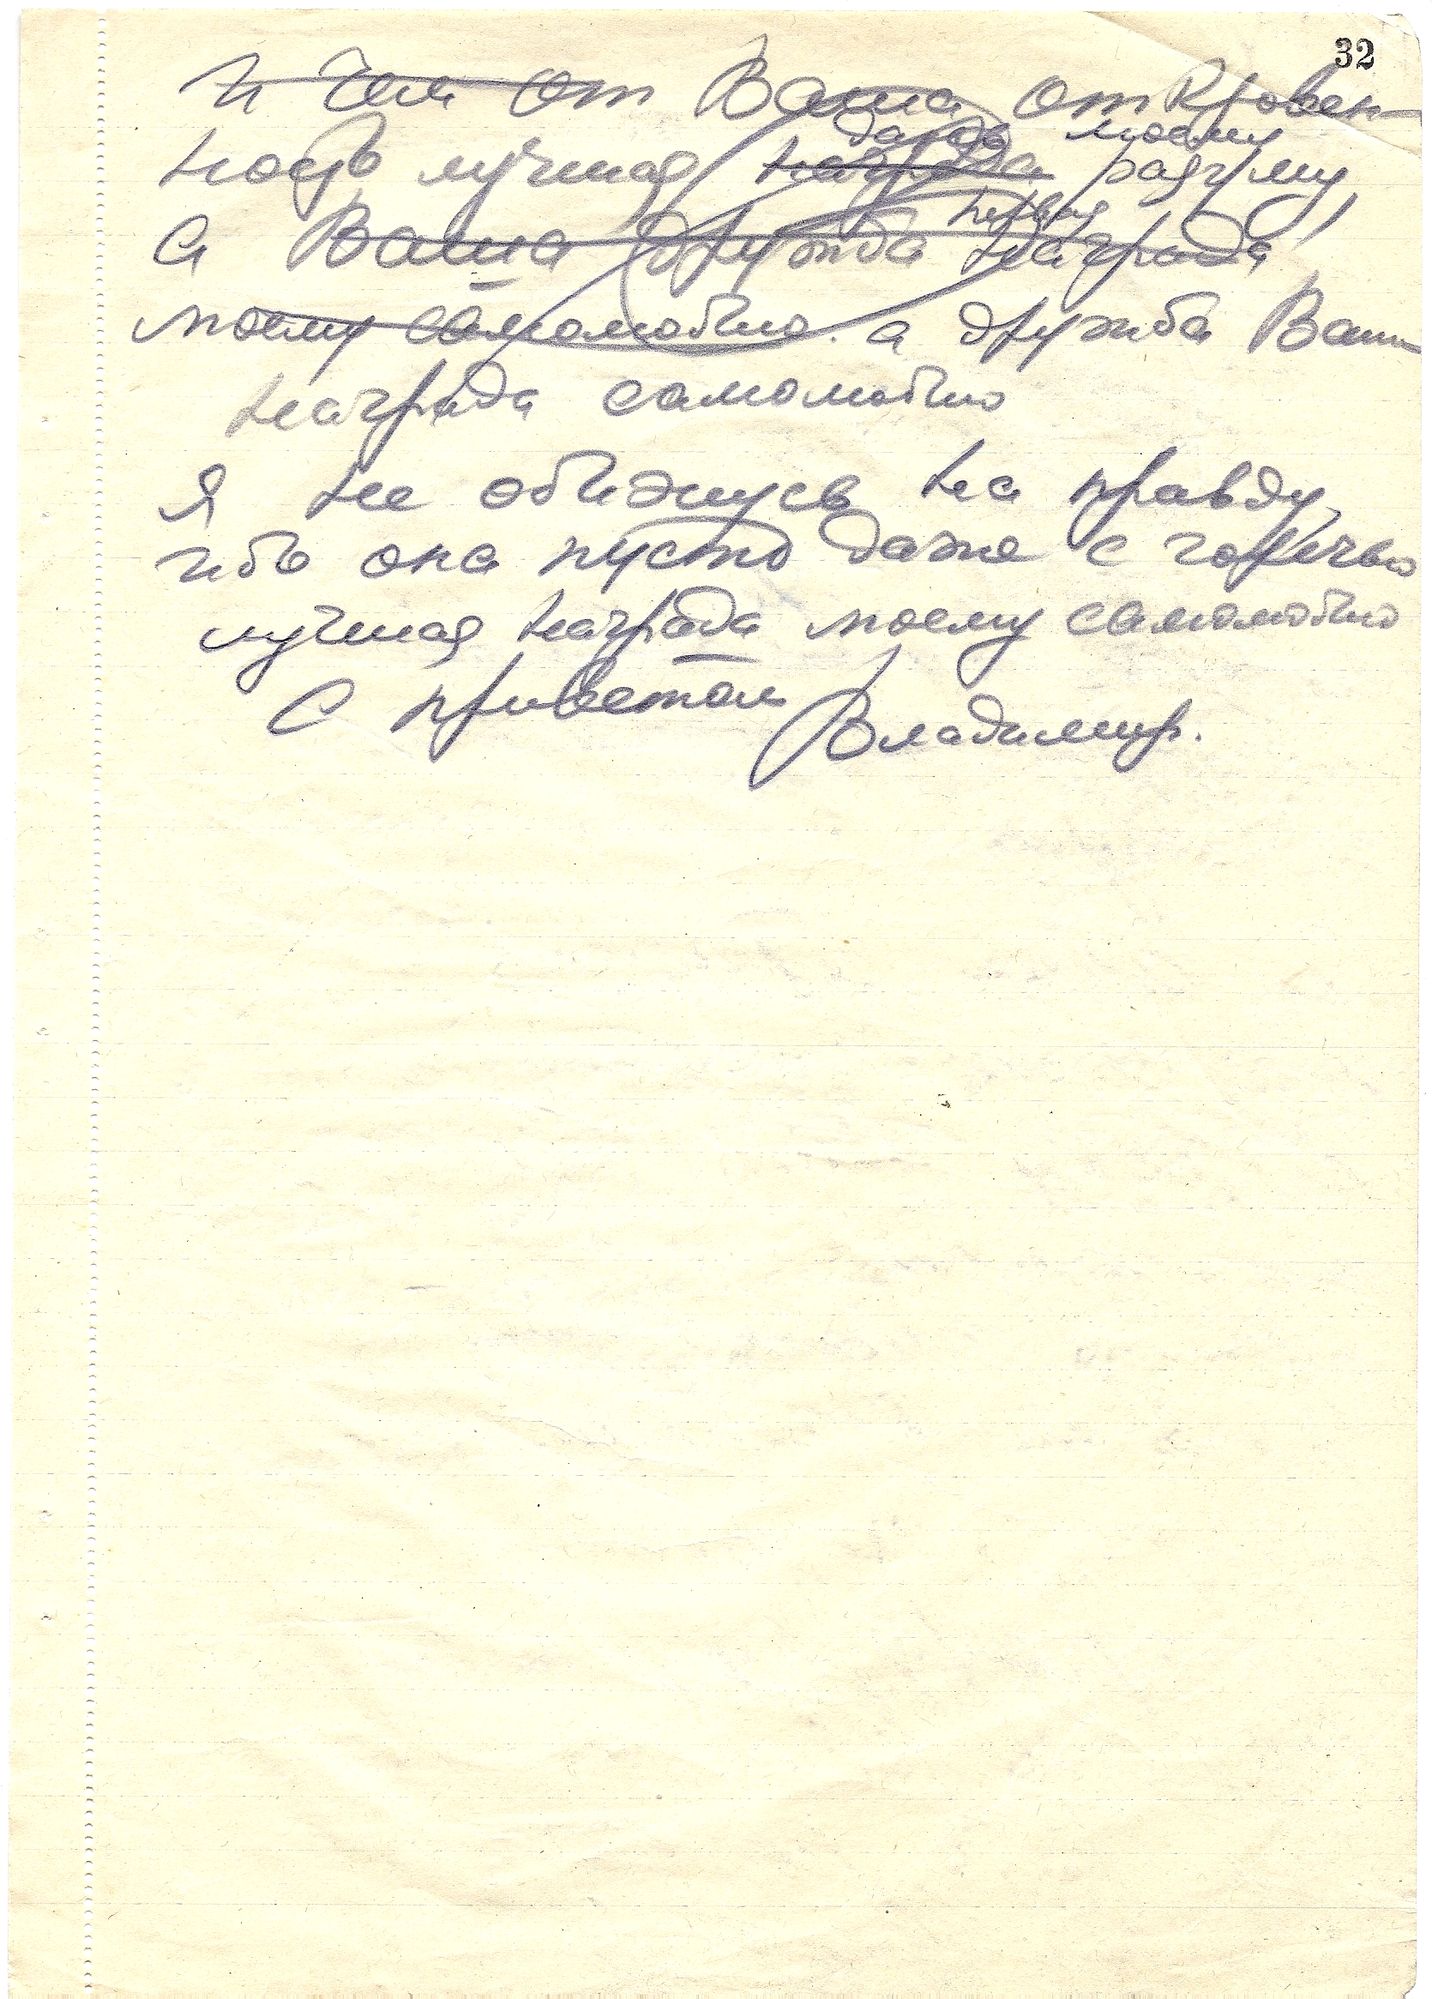 32
и чем от Ваша откровен-
ность лучшая награда моему разуму,
а Ваша дружба первая награда
моему самолюбию. а дружба Ваша
награда самолюбию
Я не обижусь на правду,
ибо она пусть даже с горечью
лучшая награда моему самолюбию
С приветом Владимир.